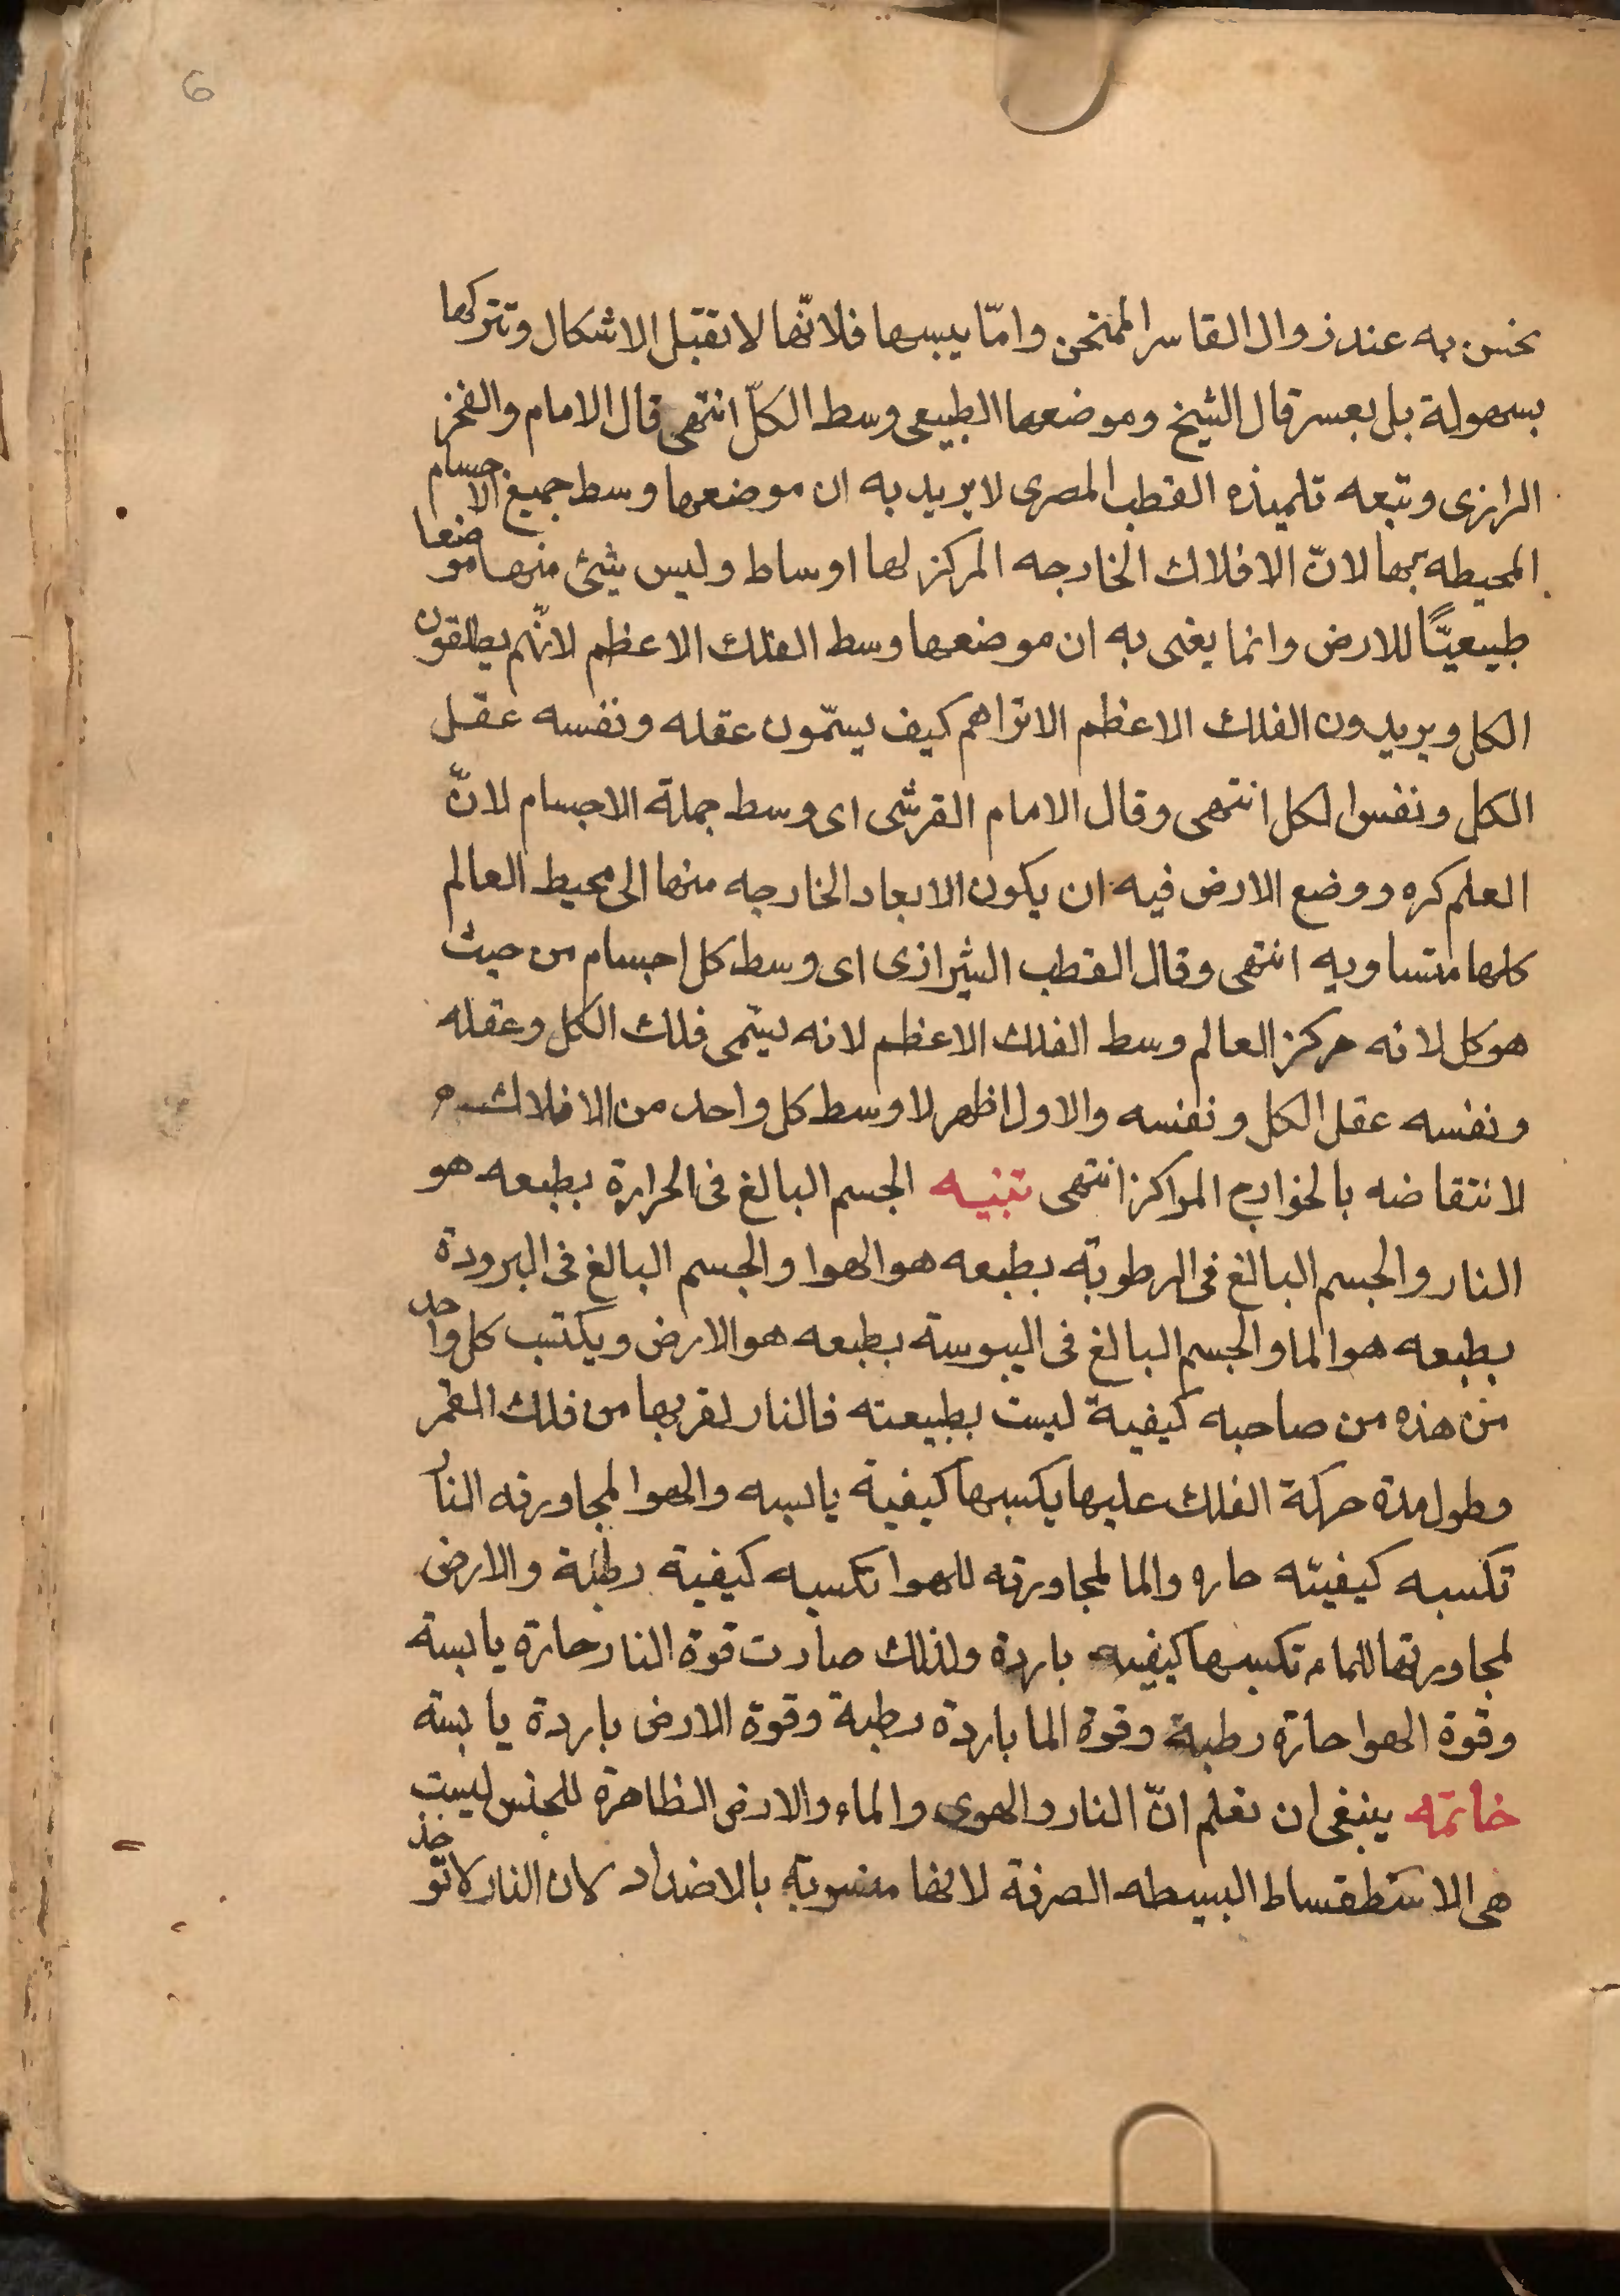 6
نحس به عند زوال القاسر المنحن وامّا يبسها فلانّها لا تقبل الاشكال وتتركها
بسهولة بل بعسر قال الشيخ وموضعها الطبيعى وسط الكلّ انتهى قال الامام والفخر
الرازى وتبعه تلميذه القطب المصرى لا يريد به ان موضعها وسط جميع الاجسام
المحيطه بها لانّ الافلاك الخارجه المركز لها اوساط وليس شئ منها موضعا
طبيعيًّا للارض وانما يغنى به ان موضعها وسط الفلك الاعظم لانّهم يطلقون
الكل ويريدون الفلك الاعظم الا تراهم كيف يسمّون عقله ونفسه عقل
الكل ونفس الكل انتهى وقال الامام القرشى اى وسط جملة الاجسام لانّ
العلم كره ووضع الارض فيه ان يكون الابعاد الخارجه منها الى محيط العالم
كلها متساويه انتهى وقال القطب الشيرازى اى وسط كل اجسام من حيث
هو كل لانه مركز العالم وسط الفلك الاعظم لانه يسمى فلك الكل وعقله
ونفسه عقل الكل ونفسه والاول اظهر لا وسط كل واحد من الافلاك
لانتقاضه بالخوارج المراكز انتهى تنبيه الجسم البالغ فى الحرارة بطبعه هو
النار والجسم البالغ فى الرطوبة بطبعه هو الهوا والجسم البالغ فى البرودة
بطبعه هو الما والجسم البالغ فى اليبوسة بطبعه هو الارض ويكتسب كل واحد
من هذه من صاحبه كيفية ليست بطبيعته فالنار لقربها من فلك القمر
وطول مدة حركة الفلك عليها يكسبها كيفية يابسه والهوا لمجاورته النار
تكسبه كيفيته حاره والما لمجاورته للهوا تكسبه كيفية رطبة والارض
لمجاورتها للماء تكسبها كيفيه باردة ولذلك صارت قوة النار حارة يابسة
وقوة الهوا حارة رطبة وقوة الما باردة رطبة وقوة الارض باردة يابسة
خاتمه ينبغى ان تعلم انّ النار والهوى والماء والارض الظاهرة للجنس ليست
هى الاستطقساط البسيطه الصرفة لانها منسوبة بالاضداد لان النار لا توخذ